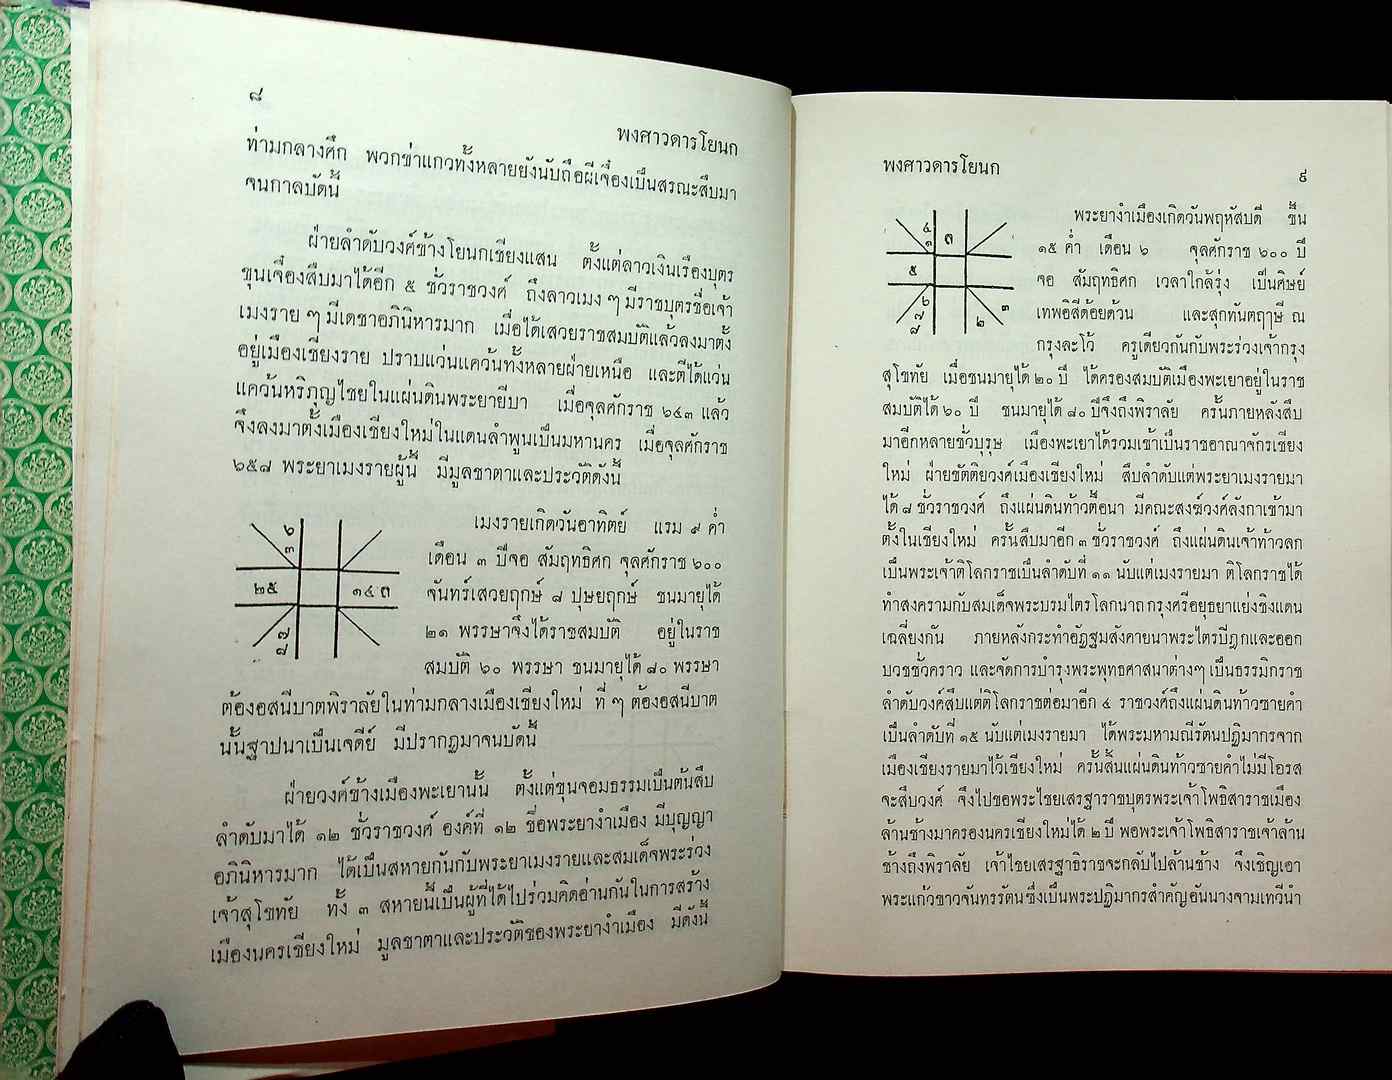 ๘
พงศาวดารโยนก
ท่ามกลางศึก พวกข่าแกวทั้งหลายยังนับถือผีเจื๋องเป็นสรณะสืบมา
จนกาลบัดนี้
ฝ่ายลำดับวงศ์ข้างโยนกเชียงแสน ตั้งแต่ลาวเงินเรืองบุตร
ขุนเจื๋องสืบมาได้อีก ๕ ชั่วราชวงศ์ ถึงลาวเมง ๆ มีราชบุตรชื่อเจ้า
เมงราย ๆ มีเดชาอภินิหารมาก เมื่อได้เสวยราชสมบัติแล้วลงมาตั้ง
อยู่เมืองเชียงราย ปราบแว่นแคว้นทั้งหลายฝ่ายเหนือ และตีได้แว่น
แคว้นหริภุญไชยในแผ่นดินพระยายีบา เมื่อจุลศักราช ๖๔๓ แล้ว
จึงลงมาตั้งเมืองเชียงใหม่ในแดนลำพูนเป็นมหานคร เมื่อจุลศักราช
๖๕๘ พระยาเมงรายผู้นี้ มีมูลชาตาและประวัติดังนี้
๖
๓
๒๕
๑๔ ๓
๗
๘
เมงรายเกิดวันอาทิตย์ แรม ๙ ค่ำ
เดือน ๓ ปีจอ สัมฤทธิศก จุลศักราช ๖๐๐
จันทร์เสวยฤกษ์ ๘ ปุษยฤกษ์ ชนมายุได้
๒๑ พรรษาจึงได้ราชสมบัติ อยู่ในราช
สมบัติ ๖๐ พรรษา ชนมายุได้ ๘๐ พรรษา
ต้องอสนีบาตพิราลัยในท่ามกลางเมืองเชียงใหม่ ที่ ๆ ต้องอสนีบาต
นั้นฐาปนาเป็นเจดีย์ มีปรากฏมาจนบัดนี้
ฝ่ายวงศ์ข้างเมืองพะเยานั้น ตั้งแต่ขุนจอมธรรมเป็นต้นสืบ
ลำดับมาได้ ๑๒ ชั่วราชวงศ์ องค์ที่ ๑๒ ชื่อพระยางำเมือง มีบุญญา
อภินิหารมาก ได้เป็นสหายกันกับพระยาเมงรายและสมเด็จพระร่วง
เจ้าสุโขทัย ทั้ง ๓ สหายนี้เป็นผู้ที่ได้ไปร่วมคิดอ่านกันในการสร้าง
เมืองนครเชียงใหม่ มูลชาตาและประวัติของพระยางำเมือง มีดังนี้
พงศาวดารโยนก
๙
๔
๑
๓
๕
๖
๗
๘
๒
๓
พระยางำเมืองเกิดวันพฤหัสบดี ขึ้น
๑๕ ค่ำ เดือน ๖ จุลศักราช ๖๐๐ ปี
จอ สัมฤทธิศก เวลาใกล้รุ่ง เป็นศิษย์
เทพอิสีด้อยด้วน และสุกทันตฤๅษี ณ
กรุงละโว้ ครูเดียวกันกับพระร่วงเจ้ากรุง
สุโขทัย เมื่อชนมายุได้ ๒๐ ปี ได้ครองสมบัติเมืองพะเยาอยู่ในราช
สมบัติได้ ๖๐ ปี ชนมายุได้ ๘๐ ปีจึงถึงพิราลัย ครั้นภายหลังสืบ
มาอีกหลายชั่วบุรุษ เมืองพะเยาได้รวมเข้าเป็นราชอาณาจักรเชียง
ใหม่ ฝ่ายขัตติยวงศ์เมืองเชียงใหม่ สืบลำดับแต่พระยาเมงรายมา
ได้ ๘ ชั่วราชวงศ์ ถึงแผ่นดินท้าวตื้อนา มีคณะสงฆ์วงศ์ลังกาเข้ามา
ตั้งในเชียงใหม่ ครั้นสืบมาอีก ๓ ชั่วราชวงศ์ ถึงแผ่นดินเจ้าท้าวลก
เป็นพระเจ้าติโลกราชเป็นลำดับที่ ๑๑ นับแต่เมงรายมา ติโลกราชได้
ทำสงครามกับสมเด็จพระบรมไตรโลกนาถกรุงศรีอยุธยาแย่งชิงแดน
เฉลี่ยงกัน ภายหลังกระทำอัฏฐมสังคายนาพระไตรปีฎกและออก
บวชชั่วคราว และจัดการบำรุงพระพุทธศาสนาต่างๆ เป็นธรรมิกราช
ลำดับวงศ์สืบแต่ติโลกราชต่อมาอีก ๔ ราชวงศ์ถึงแผ่นดินท้าวชายคำ
เป็นลำดับที่ ๑๕ นับแต่เมงรายมา ได้พระมหามณีรัตนปฏิมากรจาก
เมืองเชียงรายมาไว้เชียงใหม่ ครั้นสิ้นแผ่นดินท้าวชายคำไม่มีโอรส
จะสืบวงศ์ จึงไปขอพระไชยเสรฐาราชบุตรพระเจ้าโพธิสาราชเมือง
ล้านช้างมาครองนครเชียงใหม่ได้ ๒ ปี พอพระเจ้าโพธิสาราชเจ้าล้าน
ช้างถึงพิราลัย เจ้าไชยเสรฐาธิราชจะกลับไปล้านช้าง จึงเชิญเอา
พระแก้วขาวจันทรรัตนซึ่งเป็นพระปฏิมากรสำคัญอันนางจามเทวีนำ